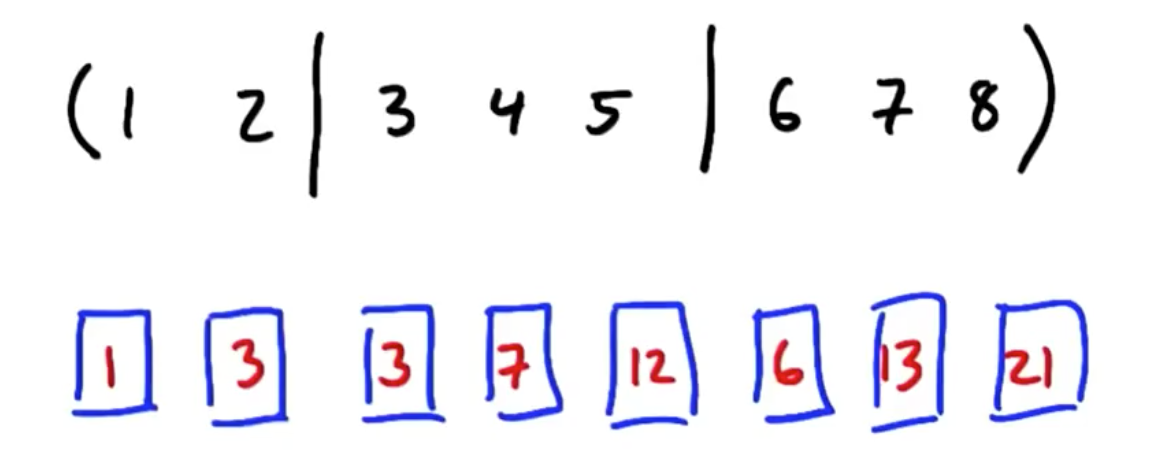 (1 2 | 3 4 5 | 6 7 8)
1 3 3 7 12 6 13 21